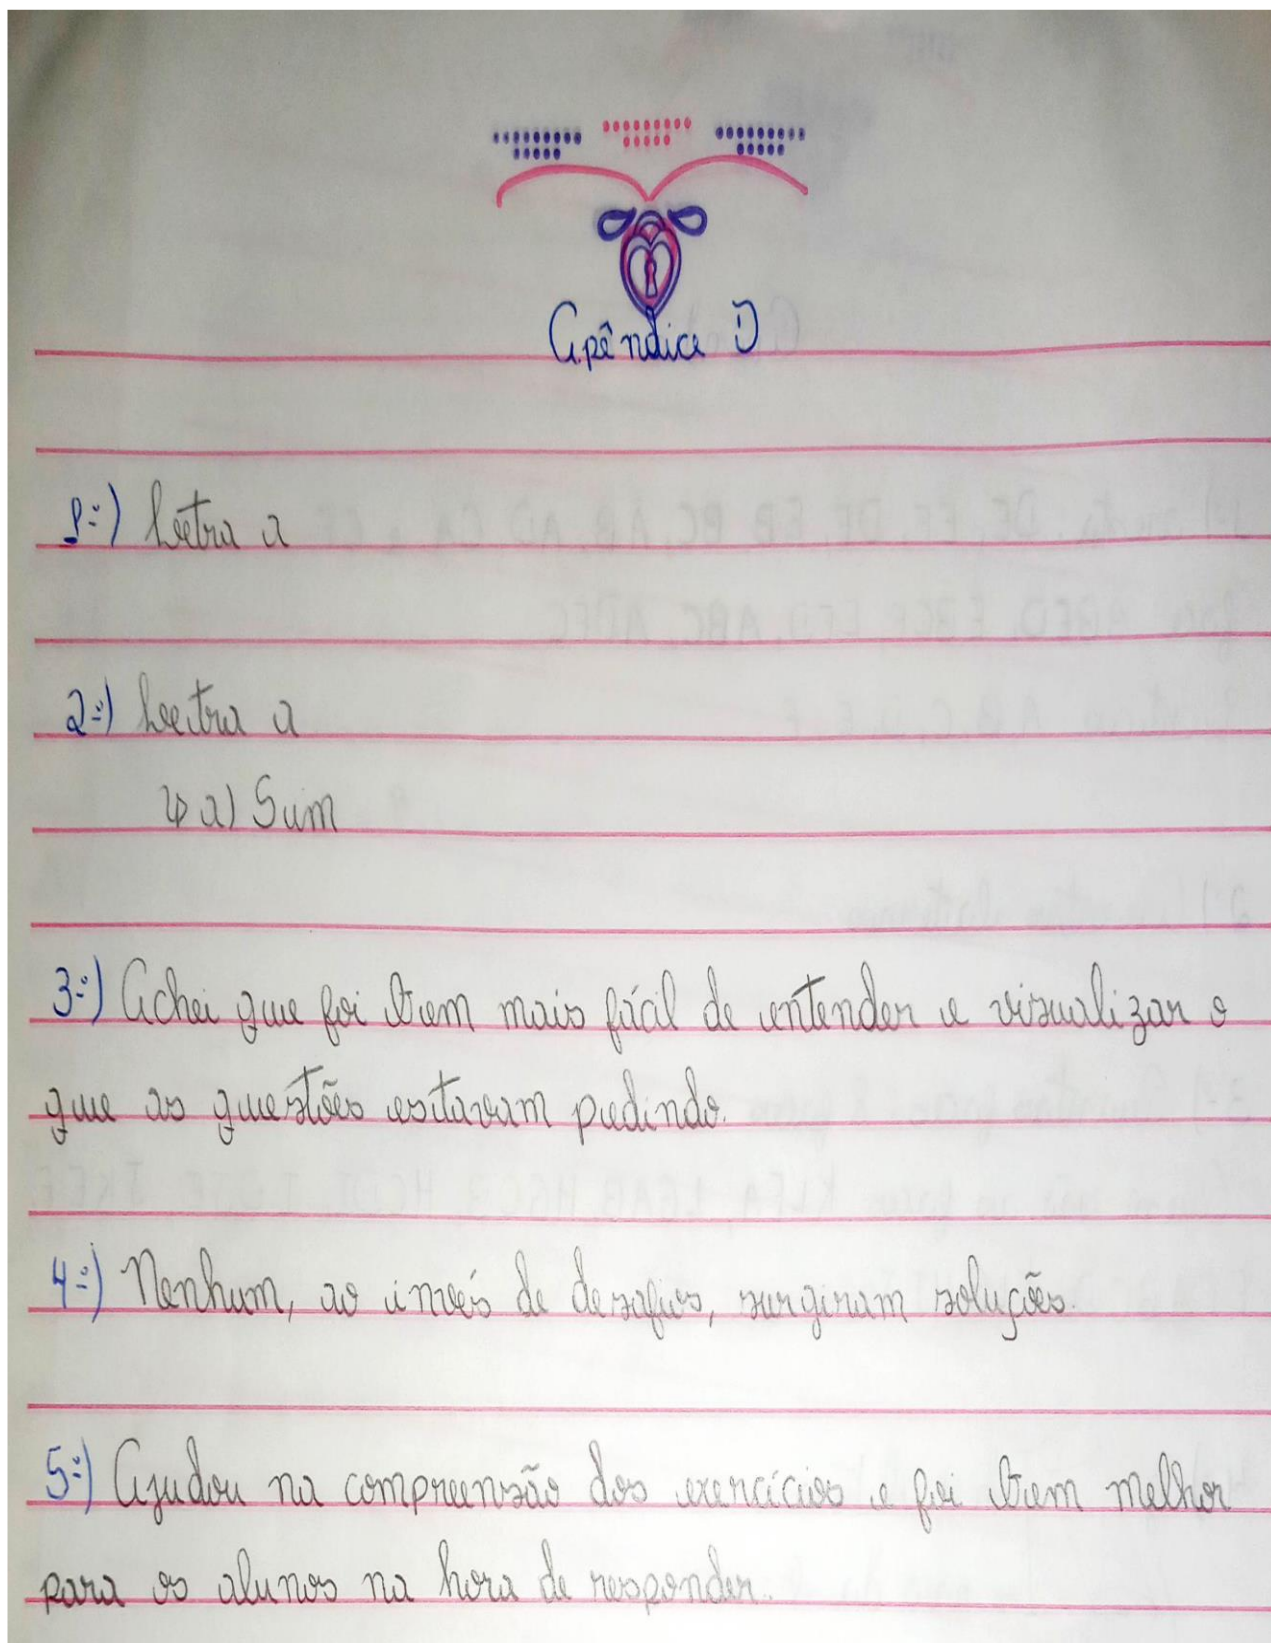 Apêndice D
1-) Letra a
2-) Letra a
↳ a) Sim
3-) Achei que foi bem mais fácil de entender e visualizar o
que as questões estavam pedindo.
4-) Nenhum, ao invés de desafios, surgiram soluções.
5-) Ajudou na compreensão dos exercícios e foi bem melhor
para os alunos na hora de responder.